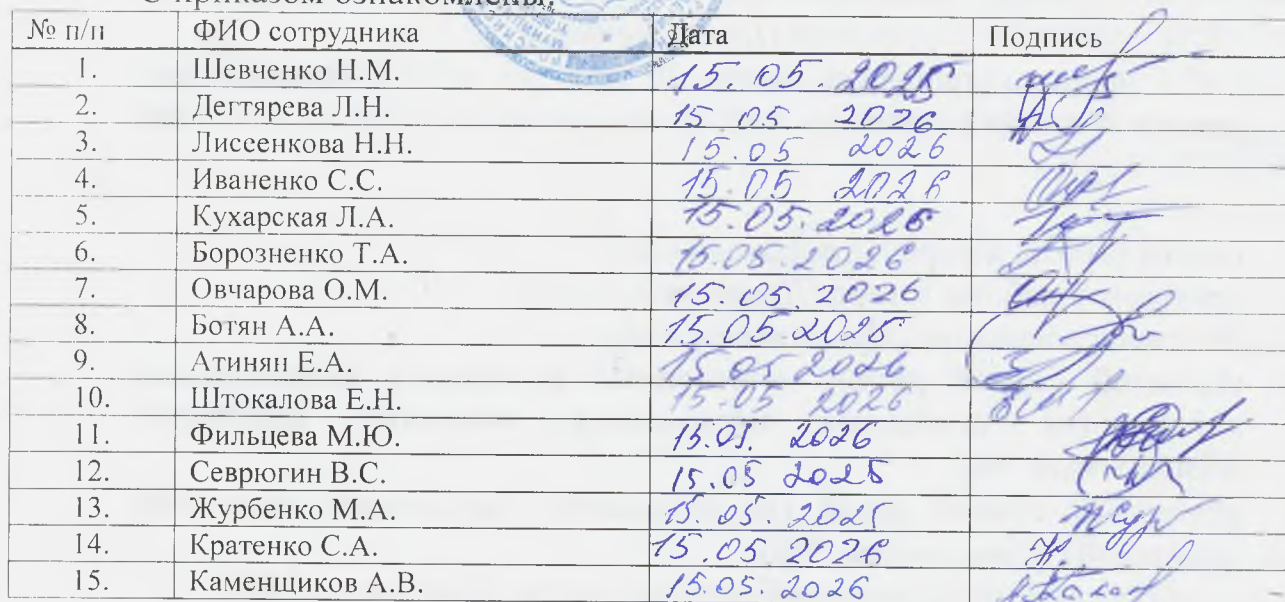 С приказом ознакомлены:
№ п/п ФИО сотрудника Дата Подпись
1. Шевченко Н.М. 15.05.2026
2. Дегтярева Л.Н. 15 05 2026
3. Лисеенкова Н.Н. 15.05 2026
4. Иваненко С.С. 15.05 2026
5. Кухарская Л.А. 15.05.2026
6. Борозненко Т.А. 15.05.2026
7. Овчарова О.М. 15.05.2026
8. Ботян А.А. 15.05.2026
9. Атинян Е.А. 15 05 2026
10. Штокалова Е.Н. 15.05 2026
11. Фильцева М.Ю. 15.05. 2026
12. Севрюгин В.С. 15.05 2026
13. Журбенко М.А. 15.05.2026
14. Кратенко С.А. 15.05 2026
15. Каменщиков А.В. 15.05.2026